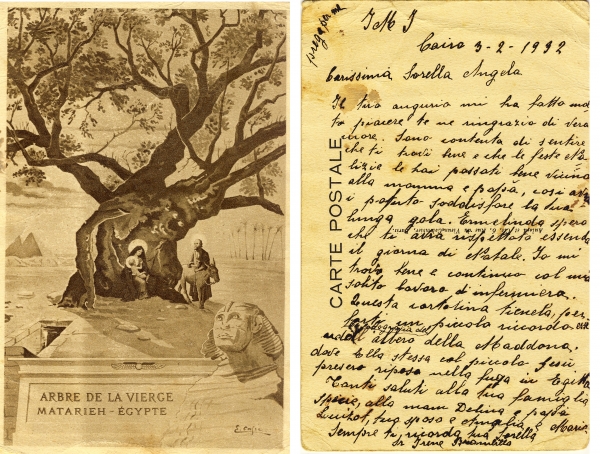 ARBRE DE LA VIERGE
MATARIEH - ÉGYPTE
CARTE POSTALE
prega per me
J M J
Cairo 3-2-1932
Carissimia Sorella Angela
Il tuo auguria mi ha fatto mol
to piacere te ne ringrazio di vera
cuore. Sono contenta di sentire
che ti trovi bene e che le feste Na
talizie le hai passati bene vicino
alla mamma e papà, così
i potuto soddisfare la tua
lunga gola. Ermelinda spero
che ti avrà rispettata essendo
il giorno di Natale. Io mi
trovo bene e continuo col mio
solito lavoro di infermiera.
Questa cartolina tienela, per
un piccolo ricordo
albero della Maddona.
dove Ella stessa col piccolo Gesù
presero riposo nella fuga in Egitto
Tanti saluti alla tua famiglia
specie, alla mam e papà
tuo sposo e Amalia e Maria
Sempre ti ricorda tua Sorella
Sr Irene